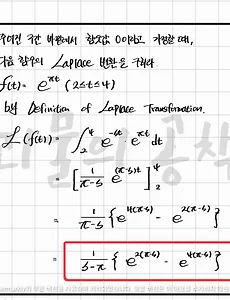 주어진 구간 바깥에서 함숫값 0이라고 가정할 때,
다음 함수의 Laplace 변환을 구하라.
f(t) = e^{πt} (2≤t≤4)
by Definition of Laplace Transformation.
ℒ(f(t)) = ∫_2^4 e^{-st} · e^{πt} dt
= [ 1/(π-s) e^{(π-s)t} ]_2^4
= 1/(π-s) { e^{4(π-s)} - e^{2(π-s)} }
= 1/(s-π) { e^{2(π-s)} - e^{4(π-s)} }